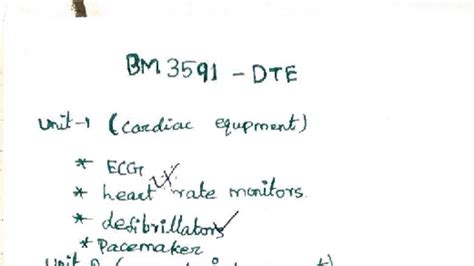 BM 3591 - DTE
Unit-1 (cardiac equpment)
* ECG
* heart rate monitors.
* defibrillators
* Pacemaker